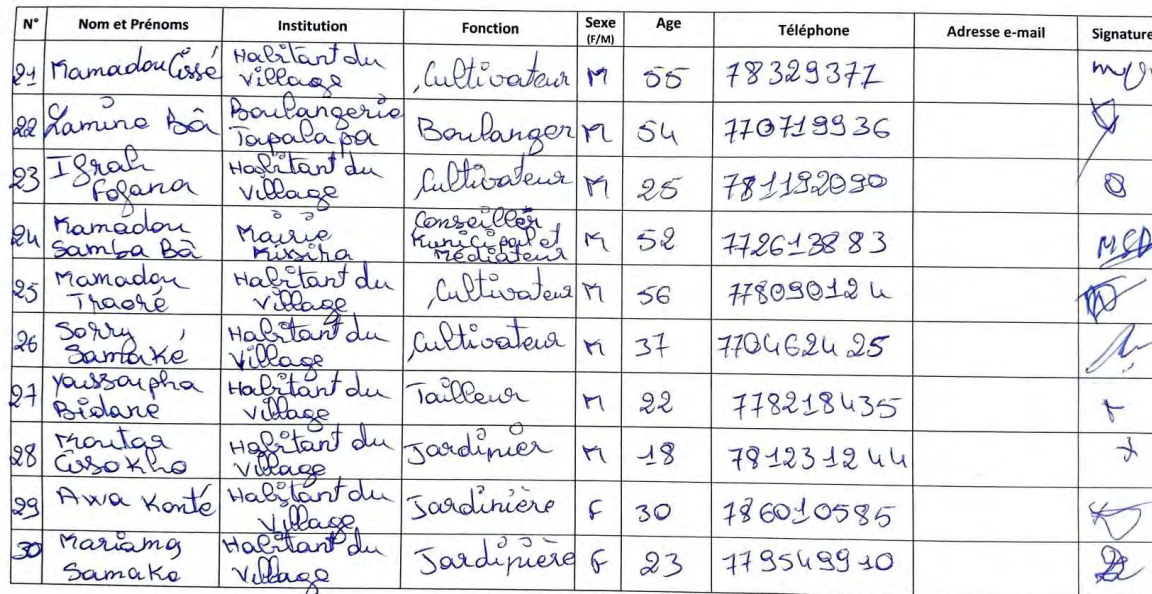 N° Nom et Prénoms Institution Fonction Sexe (F/M) Age Téléphone Adresse e-mail Signature
21 Mamadou Cissé Habitant du village Cultivateur M 55 78329377
22 Lamine Bâ Boulangerie Tapalapa Boulanger M 54 770719936
23 Fofana Habitant du village Cultivateur M 25 781192090
24 Mamadou Samba Bâ Mairie Missira Conseiller Municipal et Médiateur M 52 772613883 MSB
25 Mamadou Traoré Habitant du village Cultivateur M 56 778090124
26 Sorry Samaké Habitant du village Cultivateur M 37 770462425
27 Youssoupha Bidane Habitant du village Tailleur M 22 778218435
28 Moutar Cissokho Habitant du village Jardinier M 18 781231244
29 Awa Konté Habitant du village Jardinière F 30 786010585
30 Mariama Samake Habitant du village Jardinière F 23 779549910